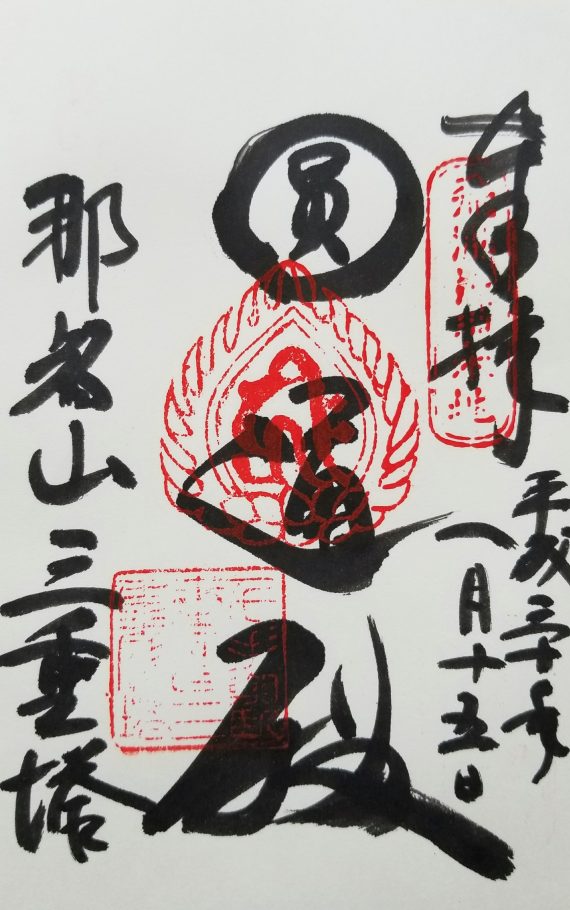 奉拝
平成三十年
一月十五日
圓通殿
那智山三重塔